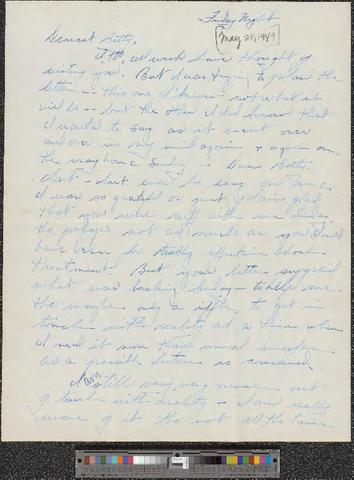 Friday Night
May 28, 1949
Dearest Betty,
I, too, all week have thought of
writing you. But I was trying to plan the
letter - this one I know not what it
will be - but the other I did know that
I wanted to say as it went over
and over in my mind again & again on
the way home Sunday - Dear Betty,
don't - don't ever be easy on me.
I was so grateful or just plain glad
that you were not with me Sunday.
tho perhaps not as much as you should
have been for really effective shock
treatment. But your letter supplied
what was lacking to help me
tho maybe only a little to get in
touch with reality at a time when
I need it more than usual
as a possible future is concerned.
I am still very, very much out
of touch with reality - I am really
aware of it tho not all the time